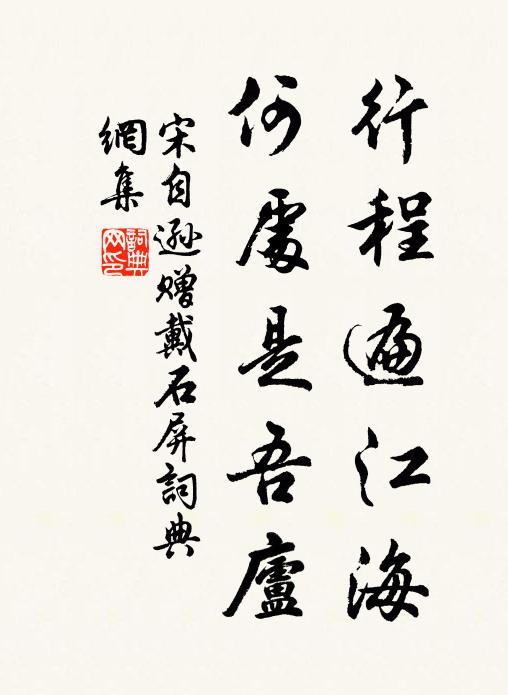 行程遍江海
何處是吾廬
宋自遜贈戴石屏詞典
網集
詞典
網印